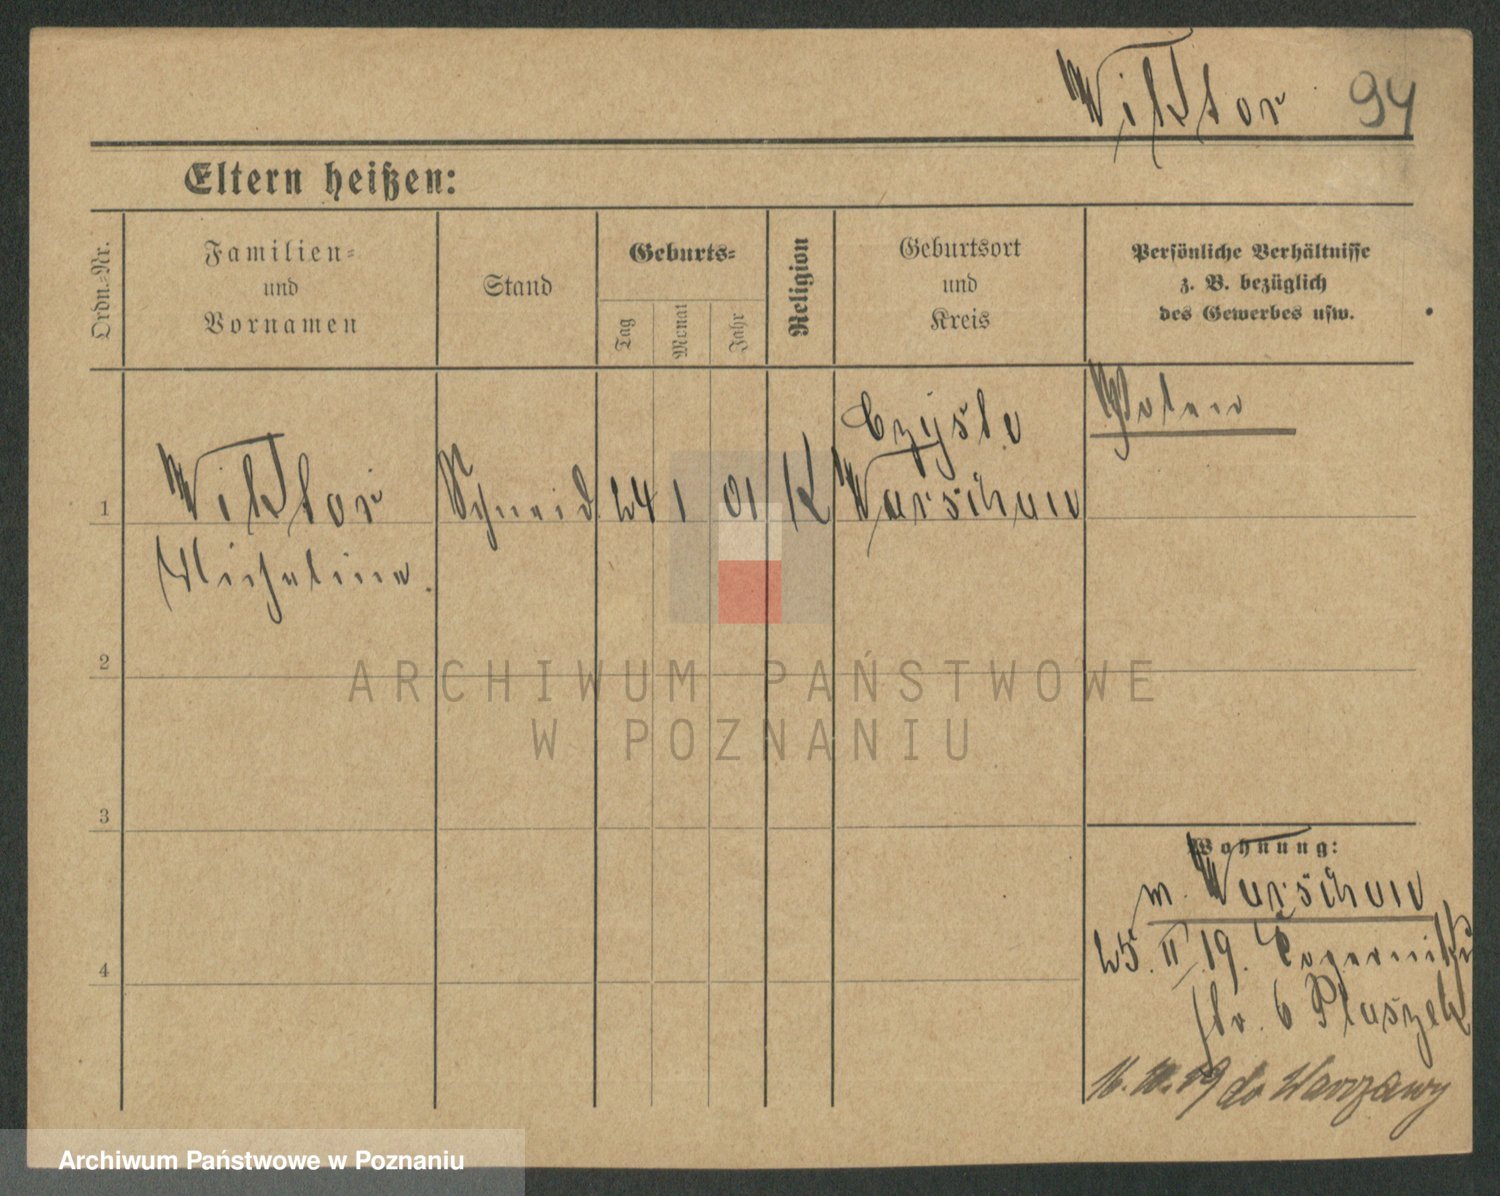 Wiktor 94
Eltern heißen:
Ordn.-Nr.
Familien-
und
Vornamen
Stand
Geburts-
Tag
Monat
Jahr
Religion
Geburtsort
und
Kreis
Persönliche Verhältnisse
z. B. bezüglich
des Gewerbes usw.
Polen
Czyste
1 Wiktor Schneid. 24 1 01 K Warschau
Michaline
2
ARCHIWUM PAŃSTWOWE
W POZNANIU
3
Wohnung:
m. Warschau
4 25. II. 19.
str. 6 Ptaszek
16. 19 do Warszawy
Archiwum Państwowe w Poznaniu